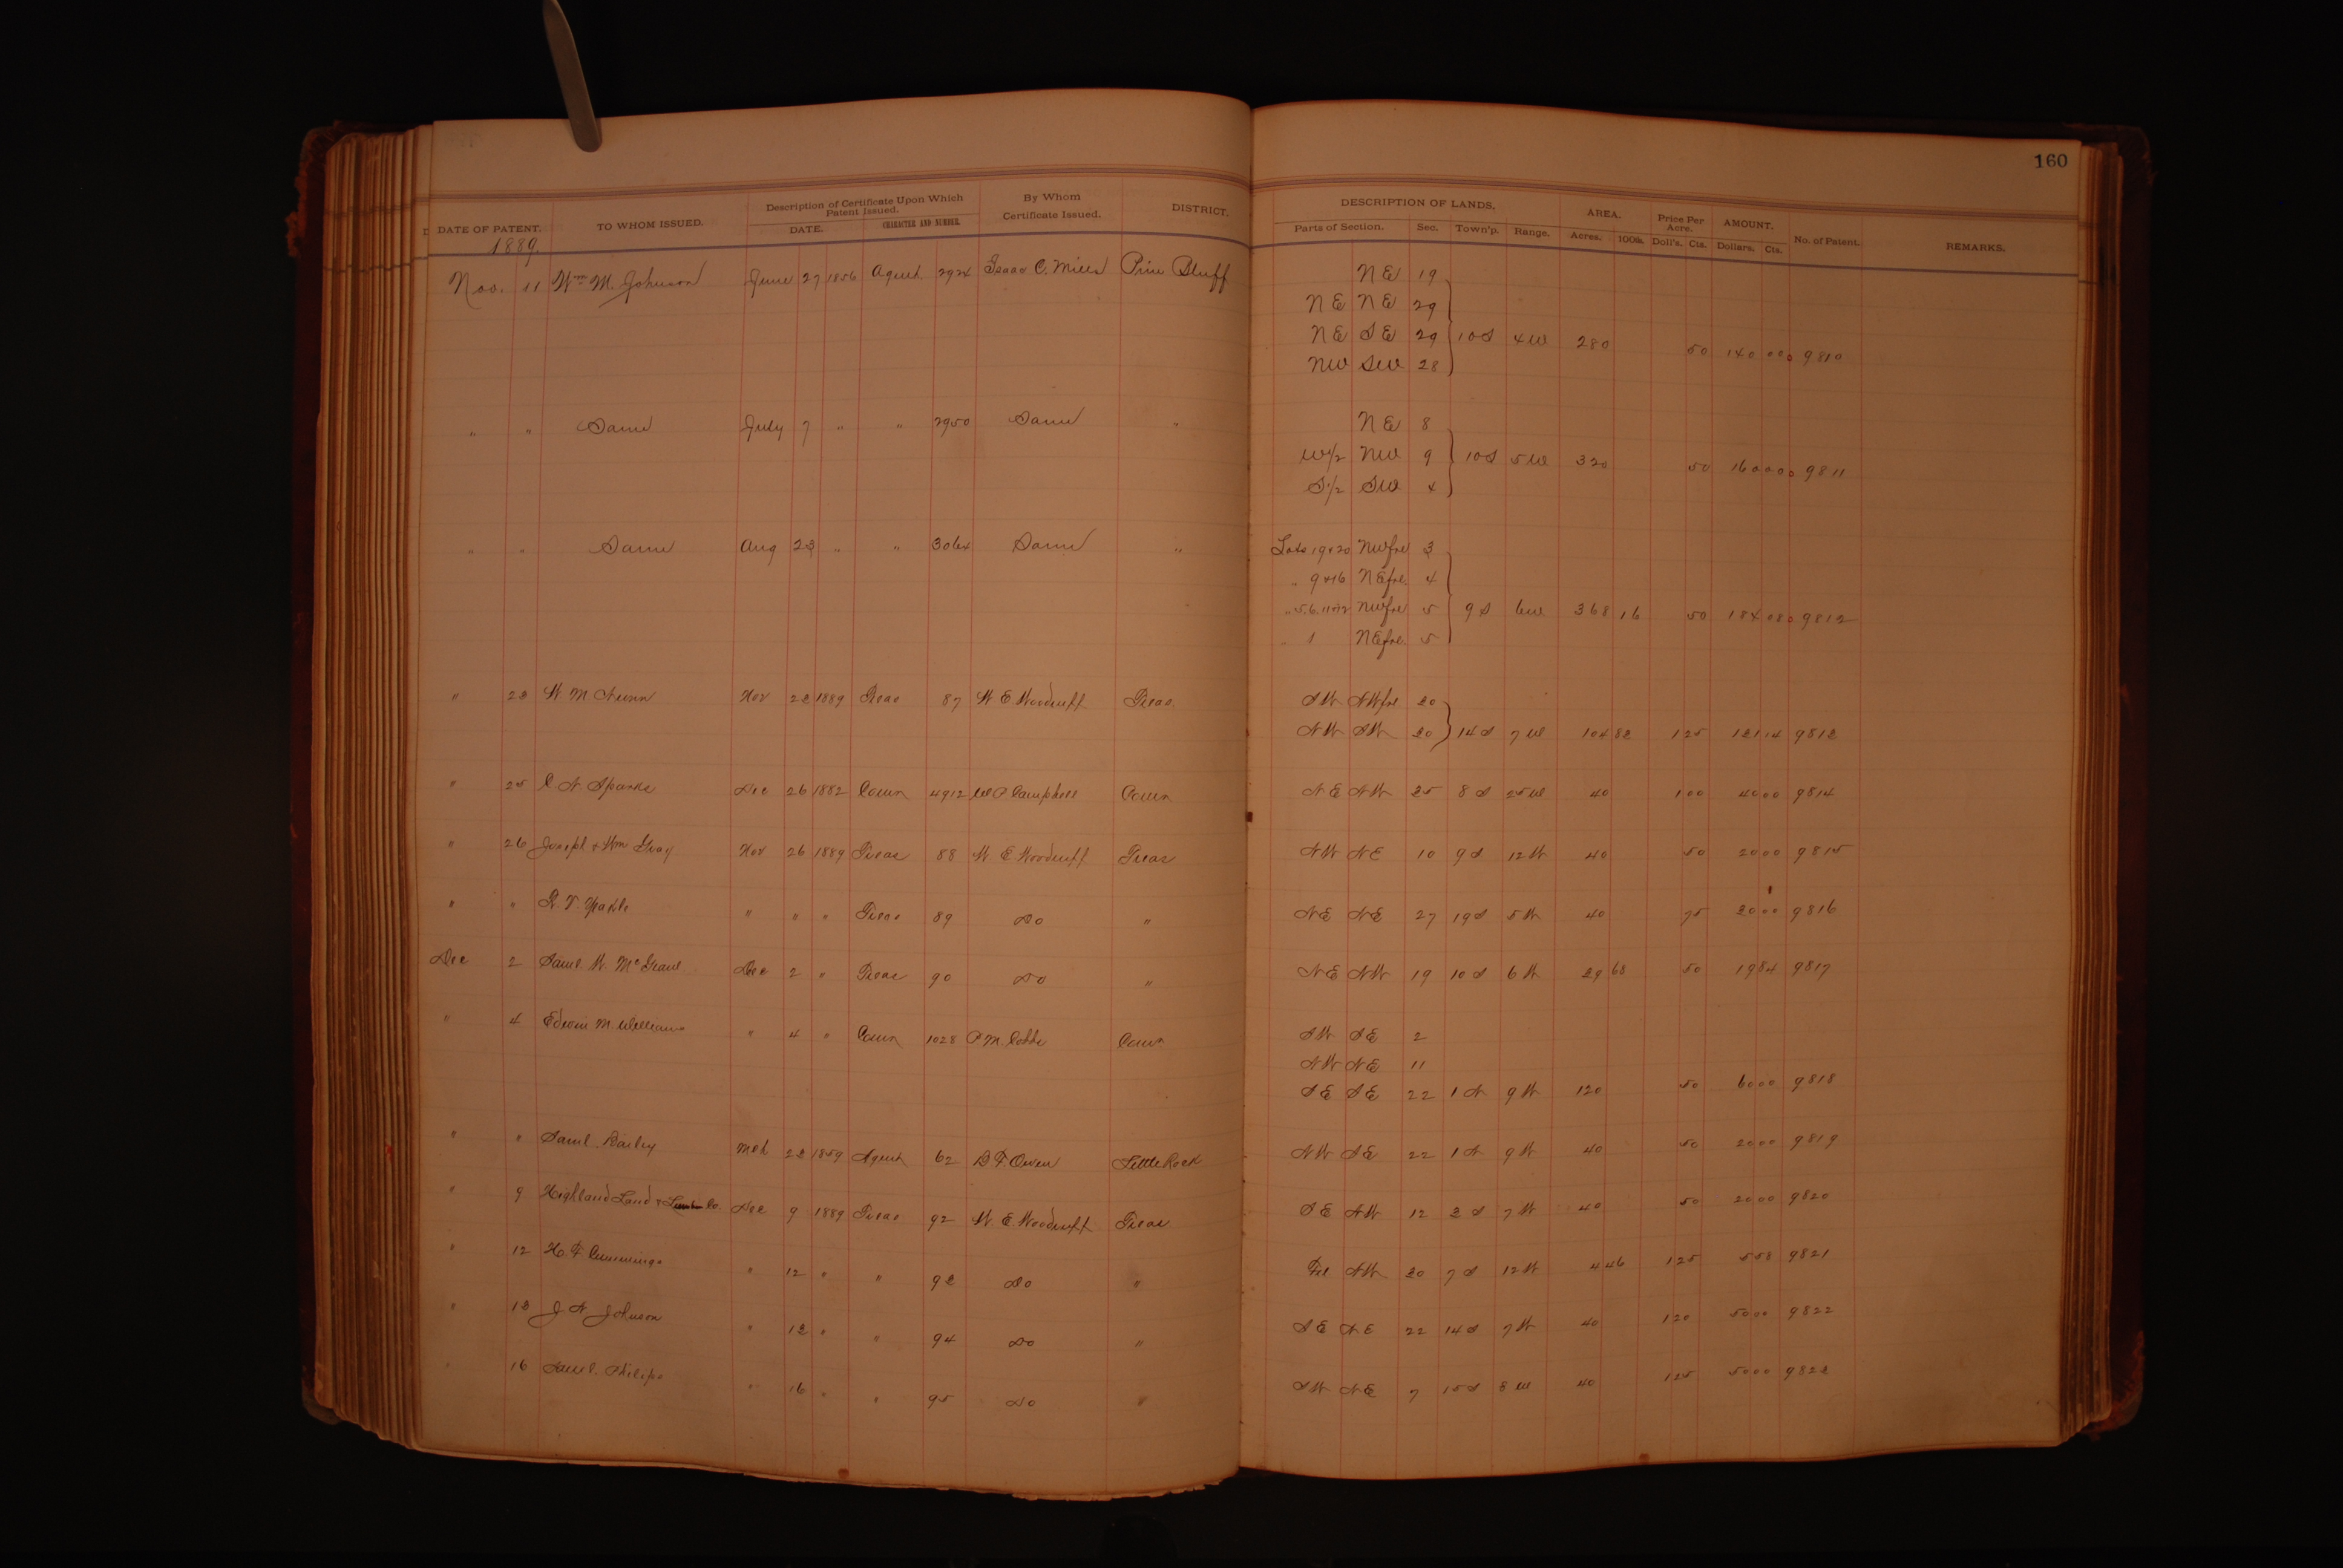 160
DATE OF PATENT. TO WHOM ISSUED. Description of Certificate Upon Which Patent Issued. DATE. CHARACTER AND NUMBER. By Whom Certificate Issued. DISTRICT. DESCRIPTION OF LANDS. Parts of Section. Sec. Town'p. Range. AREA. Acres. 100ths. Price Per Acre. Doll's. Cts. AMOUNT. Dollars. Cts. No. of Patent. REMARKS.
1889.
Nov. 11 Wm M. Johnson June 27 1856 Agent 2924 Isaac C. Mills Pine Bluff NE 19
NE NE 29
NE SE 29 10S 4W 280 50 140 00 9810
NW SW 28
" " Same July 7 " " 2950 Same " NE 8
W/2 NW 9 10S 5W 320 50 160 00 9811
S/2 SW 4
" " Same Aug 23 " " 3064 Same " Lots 19+20 NWfrl 3
" 9+16 NEfrl. 4
" 5.6.11+12 NWfrl 5 9S 6W 368 16 50 184 08 9812
" 1 NEfrl. 5
" 23 W M Nunn Nov 23 1889 Treas 87 W E Woodruff Treas. SW NWfrl 20
NW SW 20 14S 7W 104 82 1 25 131 14 9813
" 25 C. N. Sparks Dec 26 1882 Comr 4912 W P Campbell Comr NE NW 25 8S 25W 40 1 00 40 00 9814
" 26 Joseph + Wm Gray Nov 26 1889 Treas 88 W E Woodruff Treas NW NE 10 9S 12W 40 50 20 00 9815
" " R. T. " " " Treas 89 Do " NE NE 27 19S 5W 40 75 30 00 9816
Dec 2 Saml. W. Dec 2 " Treas 90 Do " NE NW 19 10S 6W 39 68 50 19 84 9817
" 4 Edwin M. Williams " 4 " Comr 1028 P M. Cobbs Comr SW SE 2
NW NE 11
SE SE 22 1N 9W 120 50 60 00 9818
" " Saml. Bailey Mch 23 1859 Agent 62 B F. Owen Little Rock NW SE 22 1N 9W 40 50 20 00 9819
" 9 Highland Land + Co. Dec 9 1889 Treas 92 W E. Woodruff Treas SE NW 12 3S 7W 40 50 20 00 9820
" 12 H. F. Cummings " 12 " " 93 Do " Frl NW 30 7S 12W 4 46 1 25 5 58 9821
" 13 J. N Johnson " 13 " " 94 Do " SE NE 22 14S 7W 40 1 20 50 00 9822
" 16 Saml. Philips " 16 " " 95 Do " SW NE 7 15S 8W 40 1 25 50 00 9823